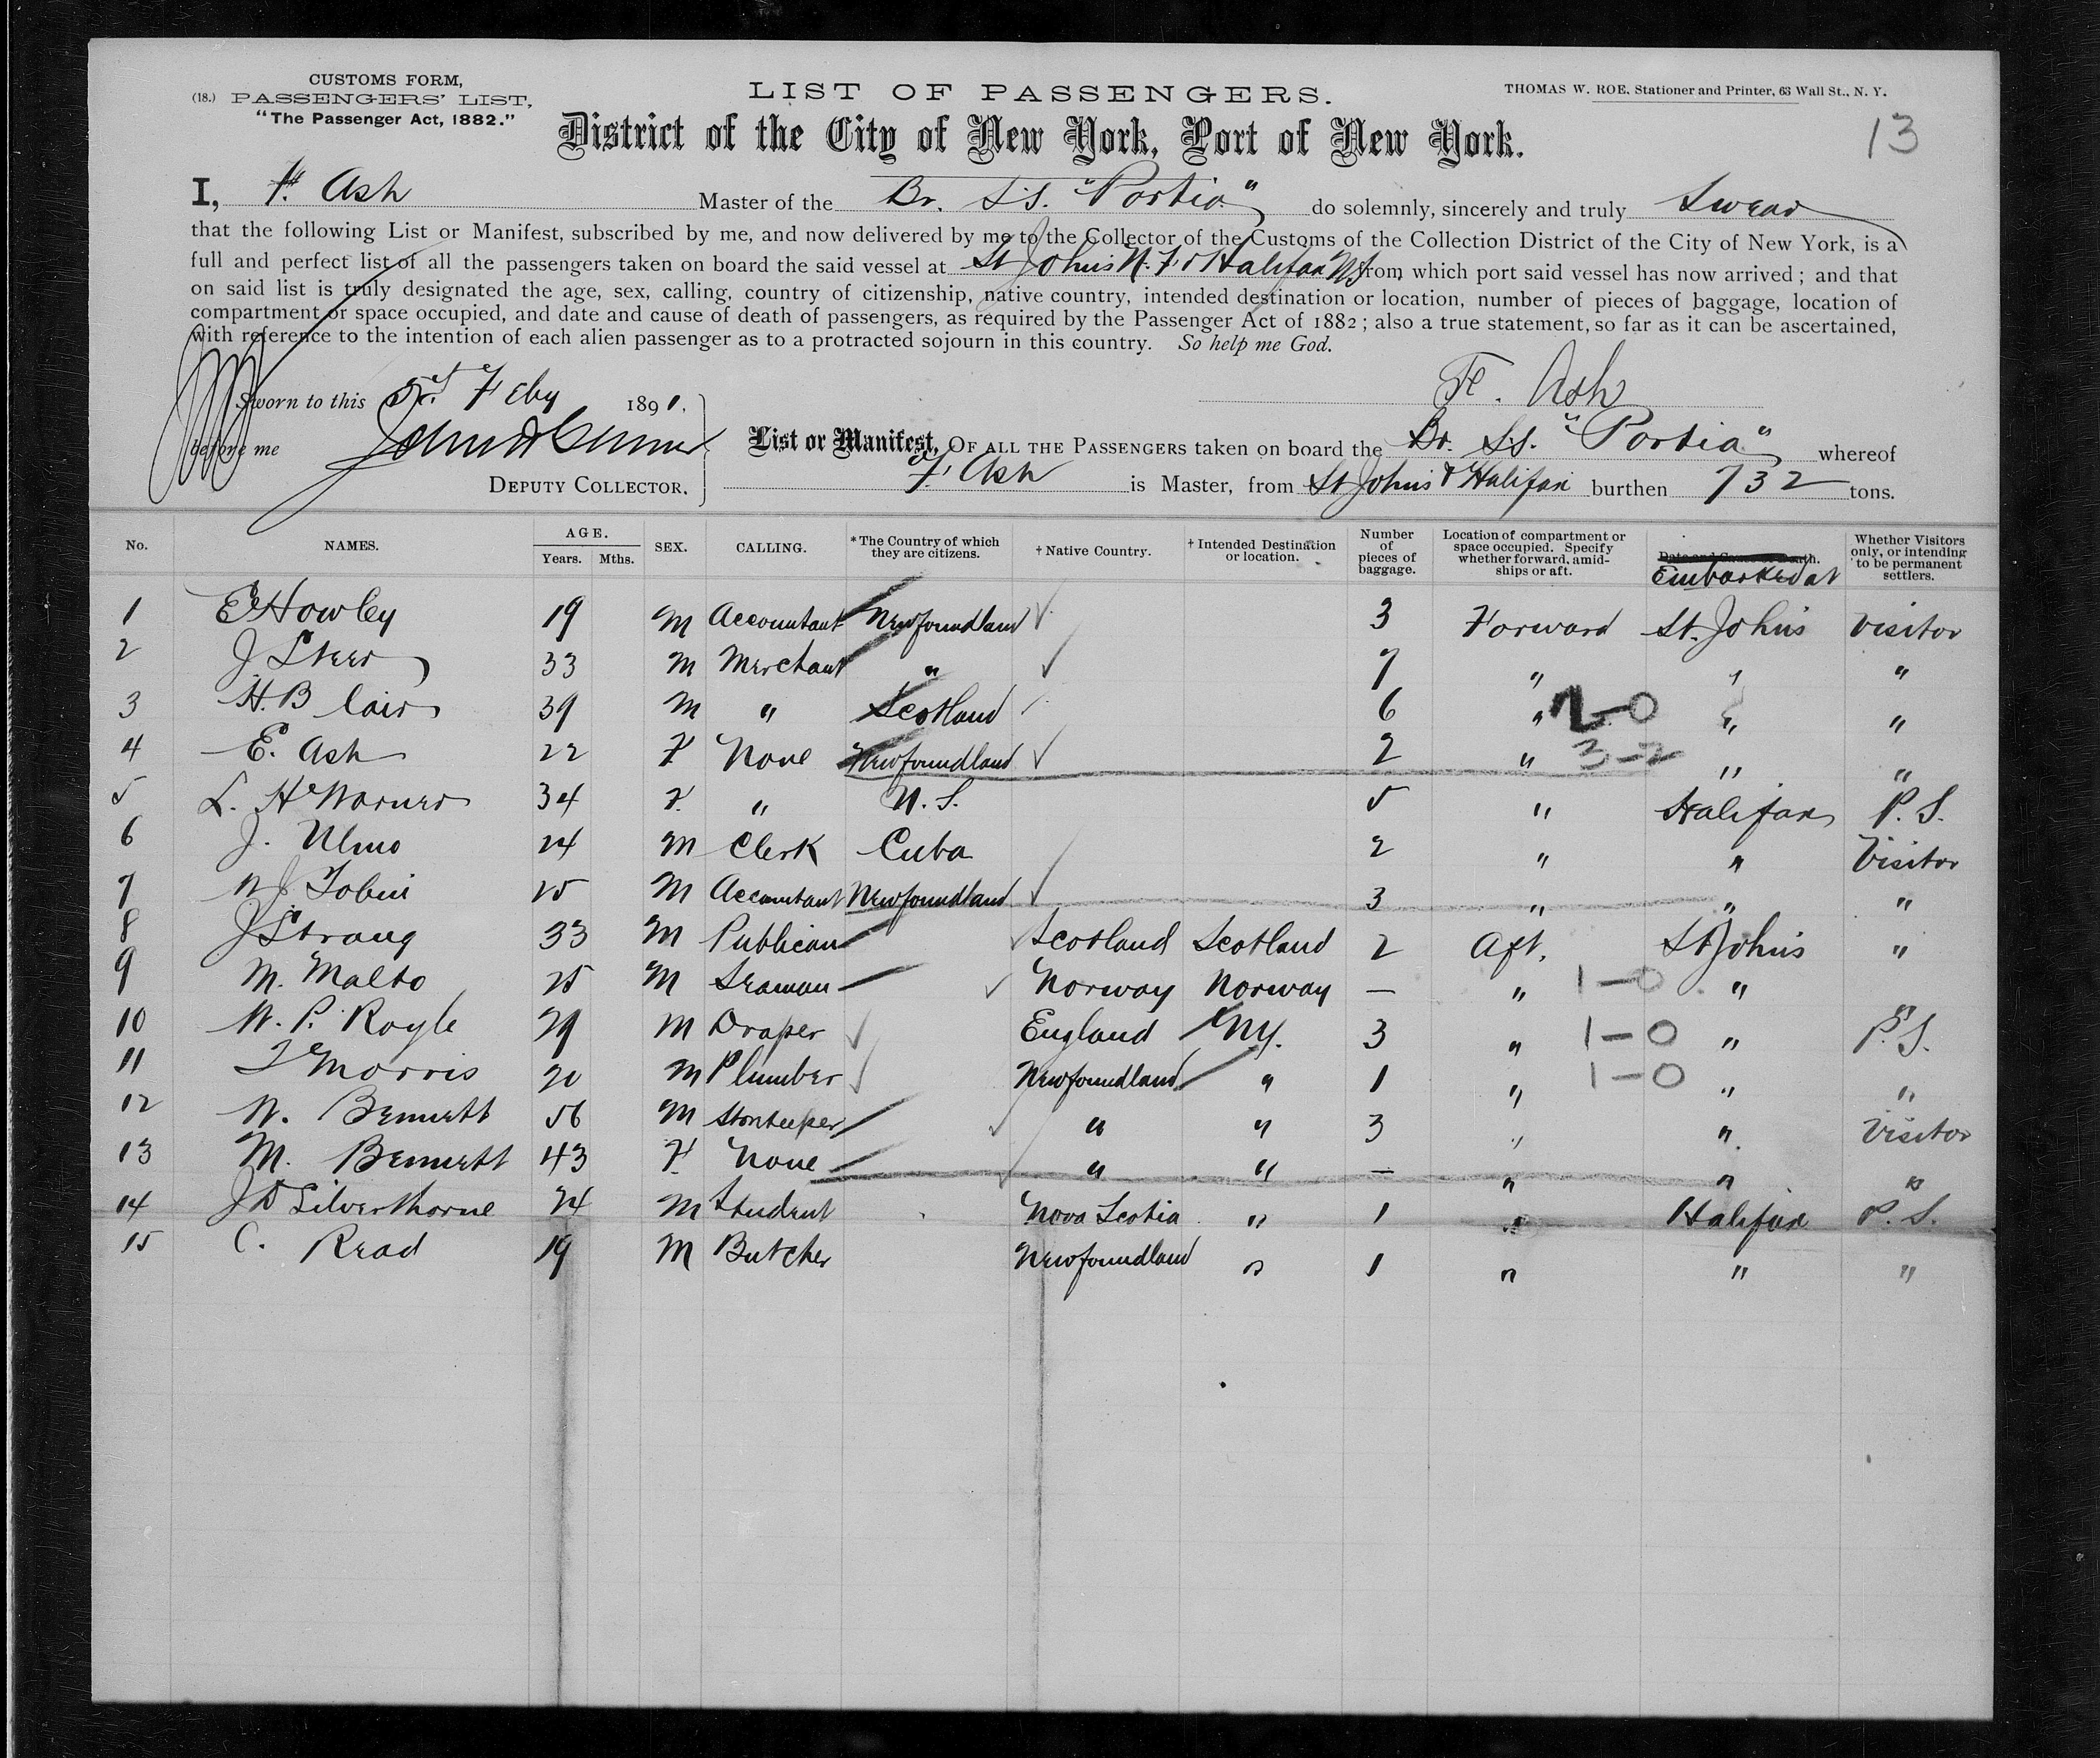 CUSTOMS FORM,
(18.) PASSENGERS' LIST,
"The Passenger Act, 1882."
LIST OF PASSENGERS.
THOMAS W. ROE, Stationer and Printer, 63 Wall St., N. Y.
District of the City of New York, Port of New York.
13
I, F. Ash Master of the Br. S.S. "Portia" do solemnly, sincerely and truly Swear
that the following List or Manifest, subscribed by me, and now delivered by me to the Collector of the Customs of the Collection District of the City of New York, is a
full and perfect list of all the passengers taken on board the said vessel at St Johns N.F & Halifax N.S from which port said vessel has now arrived; and that
on said list is truly designated the age, sex, calling, country of citizenship, native country, intended destination or location, number of pieces of baggage, location of
compartment or space occupied, and date and cause of death of passengers, as required by the Passenger Act of 1882; also a true statement, so far as it can be ascertained,
with reference to the intention of each alien passenger as to a protracted sojourn in this country. So help me God.
Sworn to this 5 Feby 1891.
F. Ash
before me
DEPUTY COLLECTOR.
List or Manifest, OF ALL THE PASSENGERS taken on board the Br. S.S. "Portia" whereof
F. Ash is Master, from St Johns & Halifax burthen 732 tons.
No. NAMES. AGE. Years. Mths. SEX. CALLING. *The Country of which they are citizens. †Native Country. †Intended Destination or location. Number of pieces of baggage. Location of compartment or space occupied. Specify whether forward, amidships or aft. Date and Cause of Death. Embarked at Whether Visitors only, or intending to be permanent settlers.
1 E Howley 19 M Accountant Newfoundland 3 Forward St. Johns Visitor
2 J 33 M Merchant " 7 " " "
3 H. B 39 M " Scotland 6 " 2-0 " "
4 E. Ash 22 F None Newfoundland 2 " 3-2 " "
5 L. H Warner 34 F. " U.S. 5 " Halifax P.S.
6 J. Ulmo 24 M Clerk Cuba 2 " " Visitor
7 W J Tobin 25 M Accountant Newfoundland 3 " " "
8 J Strang 33 M Publican Scotland Scotland 2 Aft. St Johns "
9 M. Malto 25 M Seaman Norway Norway — " 1-0 "
10 W. P. Royle 29 M Draper England NY. 3 " 1-0 " P.S.
11 T Morris 20 M Plumber Newfoundland " 1 " 1-0 " "
12 W. Bennett 56 M Storekeeper " " 3 " " Visitor
13 M. Bennett 43 F None " " — " " "
14 J D Silverthorne 24 M Student Nova Scotia " 1 " Halifax P.S.
15 C. Read 19 M Butcher Newfoundland " 1 " " "